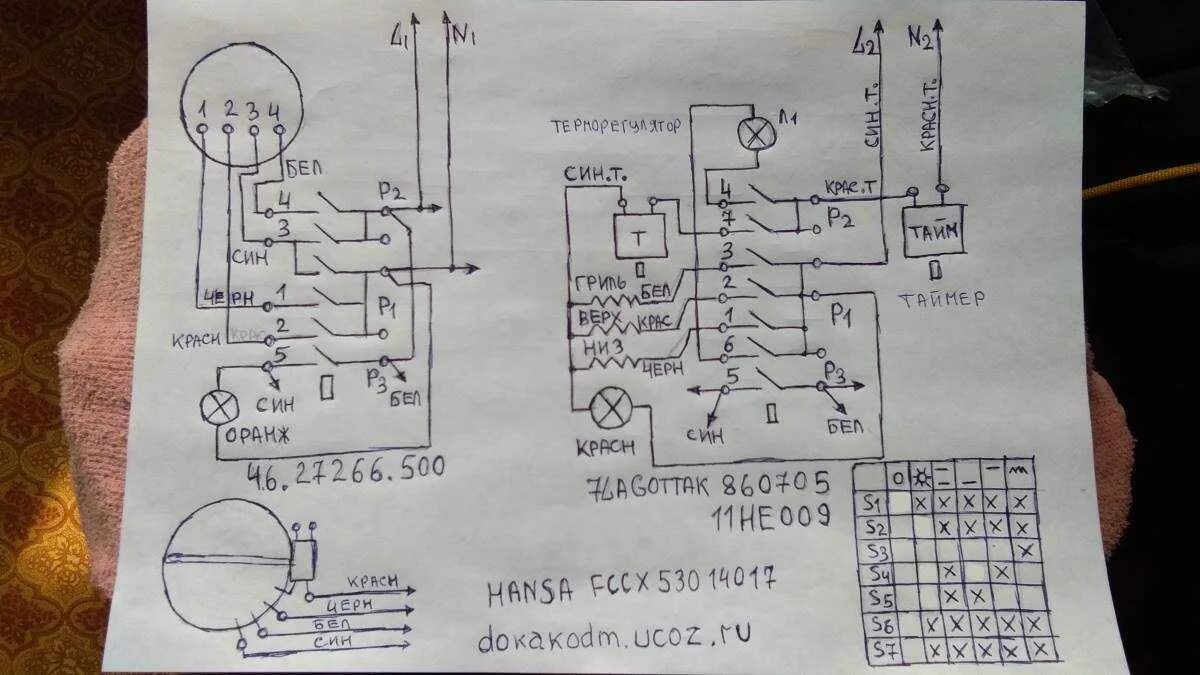 L1 N1
1 2 3 4
БЕЛ
4
P2
3
СИН
1
ЧЕРН
P1
2
КРАСН КРАС
5
P3
СИН
БЕЛ
ОРАНЖ
46.27266.500
L2 N2
СИН.Т.
КРАСН.Т.
Л1
ТЕРМОРЕГУЛЯТОР
СИН.Т.
4
КРАС.Т
P2
7
Т
ТАЙМ
ТАЙМЕР
3
ГРИЛЬ БЕЛ
2
ВЕРХ КРАС
P1
1
НИЗ
ЧЕРН
6
5
P3
СИН
БЕЛ
КРАСН
7LAGOTTAK 860705
11HE009
КРАСН
ЧЕРН
БЕЛ
СИН
HANSA FCCX53014017
dokakodm.ucoz.ru
0
S1 X X X X X
S2 X X X X
S3 X
S4 X X
S5 X X
S6 X X X X X X
S7 X X X X X X